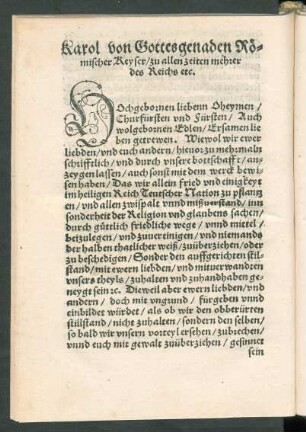 Karol von Gottes genaden Rö-
mischer Keyser/zu allen zeiten mehrer
des Reichs etc.
HOchgebornen liebenn Oheymen/
Churfürsten vnd Fürsten/ Auch
wolgebornen Edlen/ Ersamen lie
ben getrewen. Wiewol wir ewer
liebden/vnd euch andern/ hieuor zu mehrmaln
schrifftlich/ vnd durch vnsere bottschafft/ an-
zeygen lassen/ auch sonst mit dem werck bewi
sen haben/ Das wir allen frid vnd einigkeyt
im heiligen Reich Teutscher Nation zu pflantz
en/ vnd allen zwispalt vnnd mißuerstand/ inn
sonderheit der Religion vnd glaubens sachen/
durch gütlich fridliche wege/ vnnd mittel/
beizulegen/ vnd zuuereinigen/ vnd niemands
der halben thatlicher weiß/zuüberziehen/oder
zu beschedigen/ Sonder den auffgerichten stil-
stand/ mit ewern liebden/ vnd mituerwandten
vnsers theyls/ zuhalten vnd zuhandhaben ge-
neygt sein ꝛc. Dieweil aber ewern liebden/vnd
andern/ doch mit vngrund/ fürgeben vnnd
einbildet würdet/ als ob wir den obberürten
stillstand/ nicht zuhalten/ sondern den selben/
so bald wir vnsern vorteyl ersehen/ zubrechen/
vnnd euch mit gewalt zuüberziehen/ gesinnet
sein